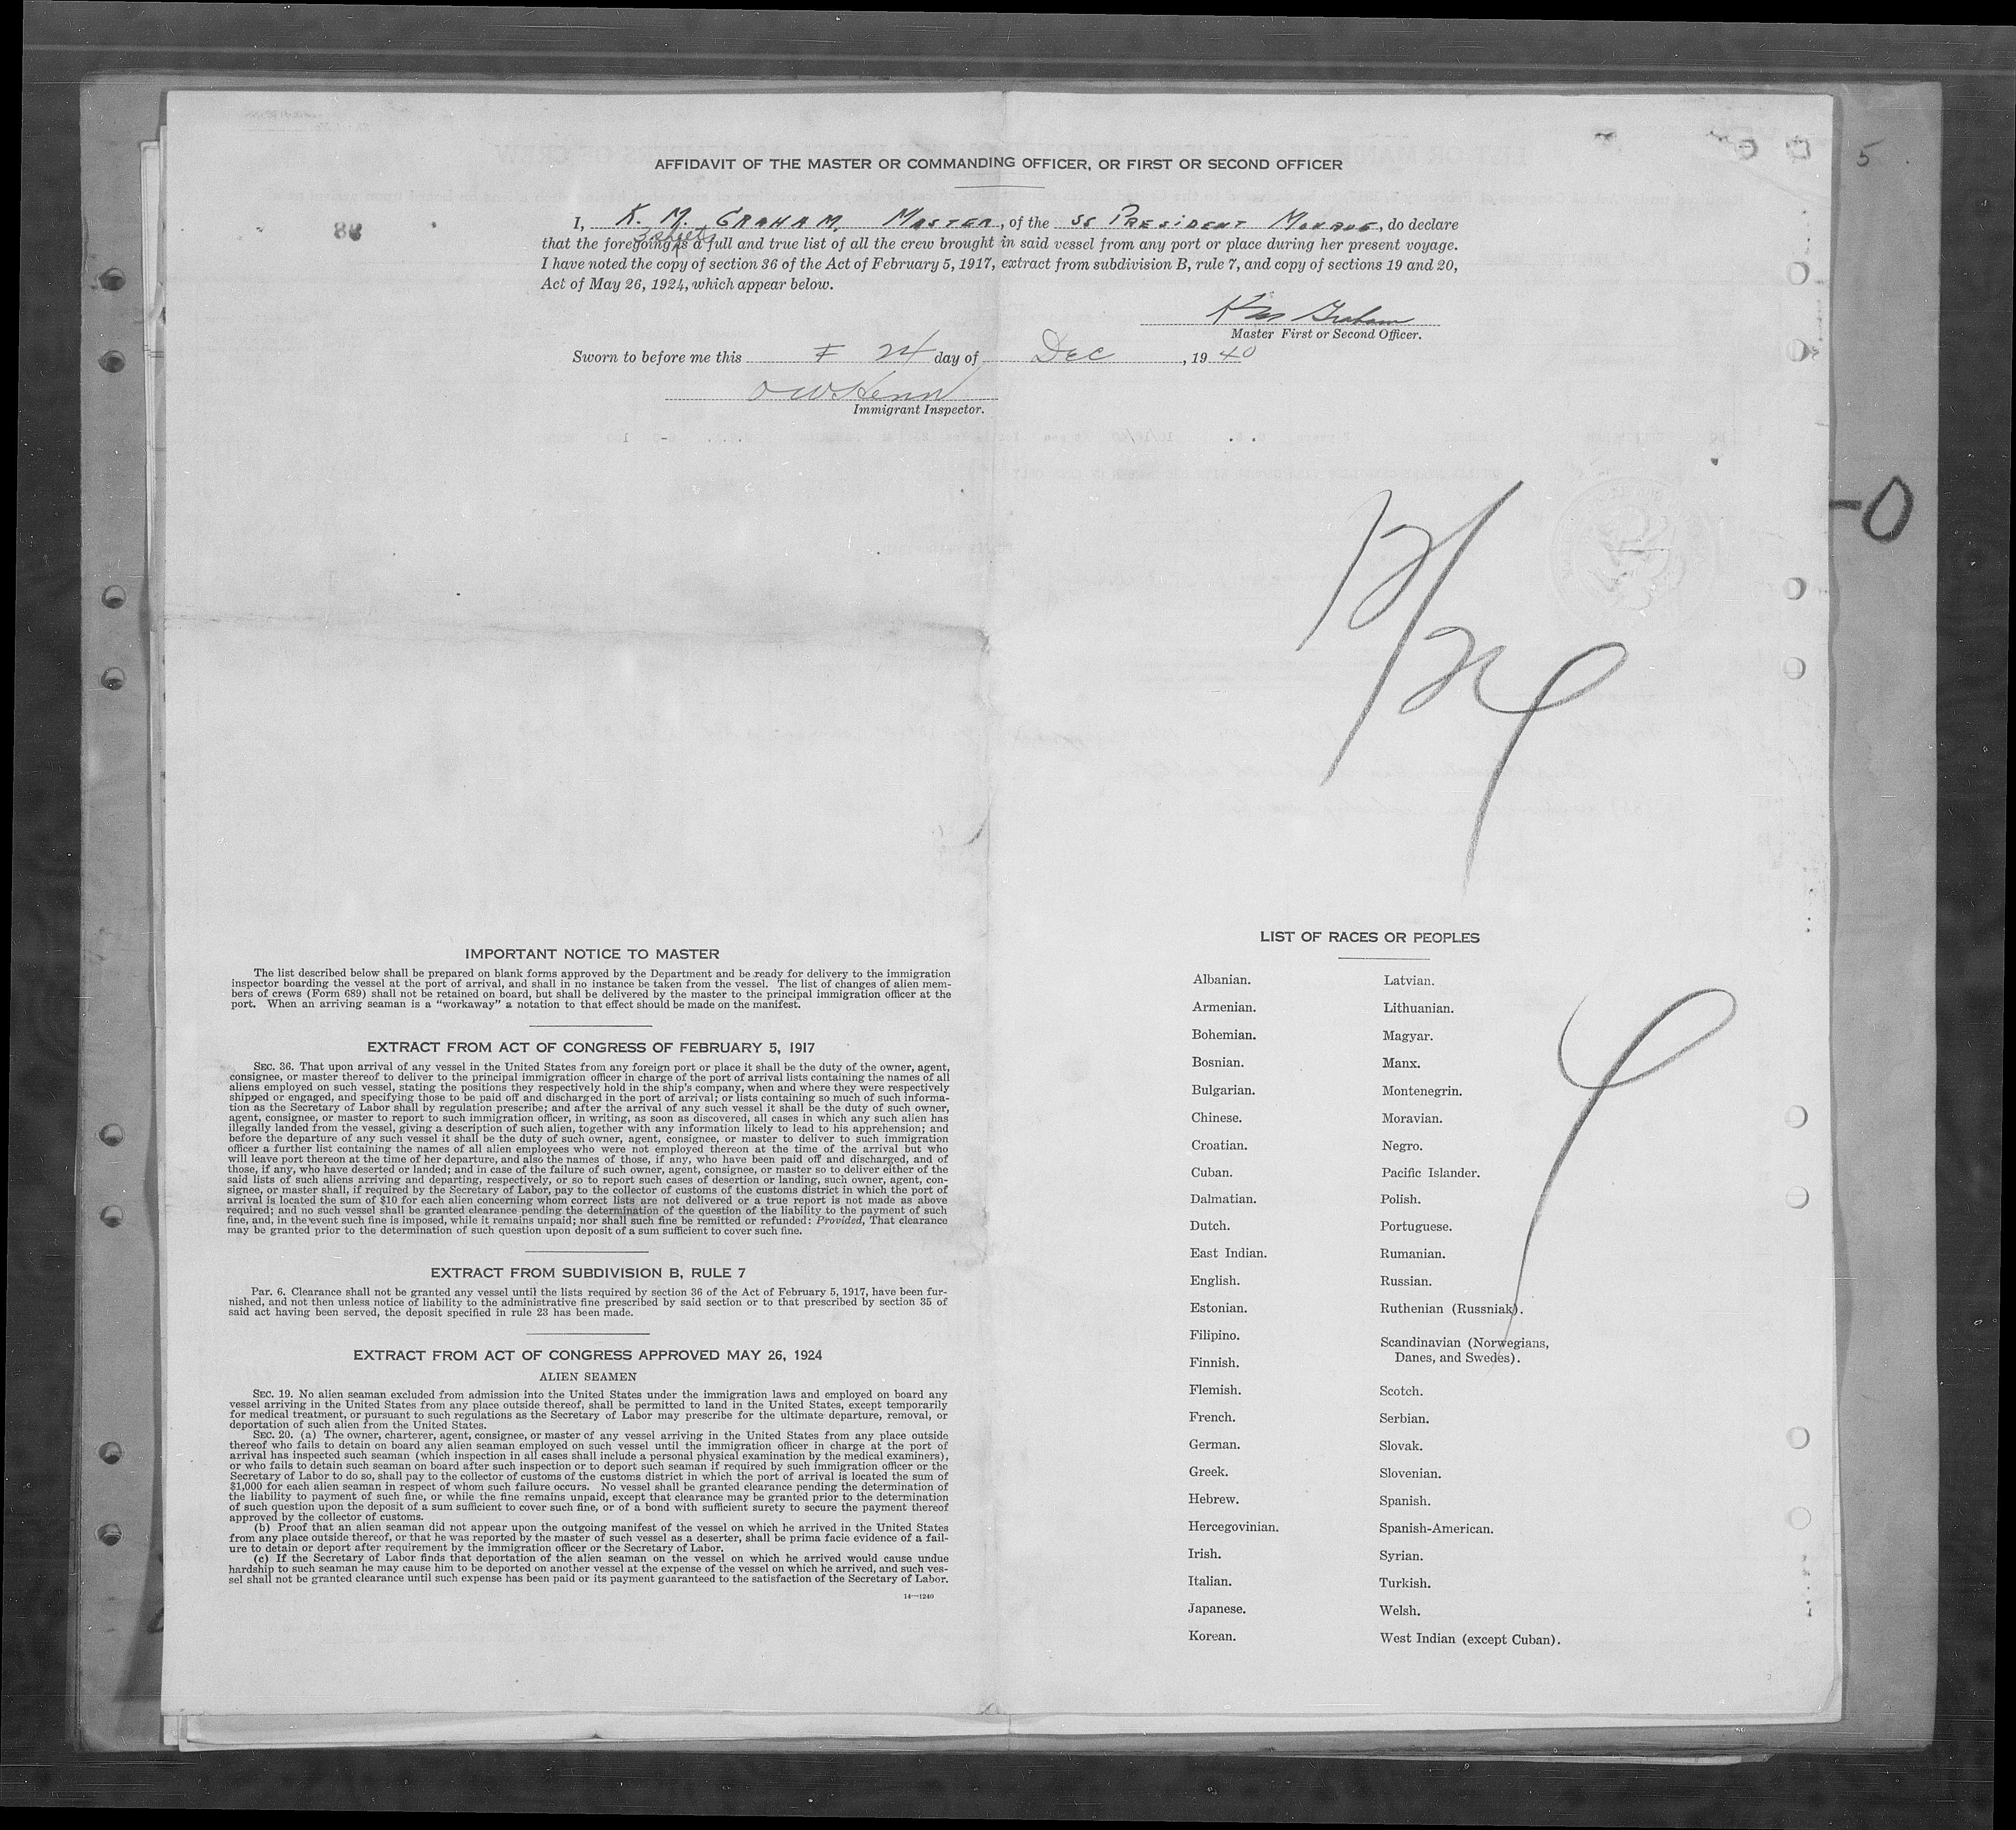 AFFIDAVIT OF THE MASTER OR COMMANDING OFFICER, OR FIRST OR SECOND OFFICER
I, K. M. GRAHAM, MASTER, of the SS PRESIDENT MONROE, do declare
3 sheets
that the foregoing is a full and true list of all the crew brought in said vessel from any port or place during her present voyage.
I have noted the copy of section 36 of the Act of February 5, 1917, extract from subdivision B, rule 7, and copy of sections 19 and 20,
Act of May 26, 1924, which appear below.
K M Graham
Master First or Second Officer.
Sworn to before me this 24 day of Dec, 1940
Immigrant Inspector.
5
-0
IMPORTANT NOTICE TO MASTER
The list described below shall be prepared on blank forms approved by the Department and be ready for delivery to the immigration
inspector boarding the vessel at the port of arrival, and shall in no instance be taken from the vessel. The list of changes of alien mem-
bers of crews (Form 689) shall not be retained on board, but shall be delivered by the master to the principal immigration officer at the
port. When an arriving seaman is a "workaway" a notation to that effect should be made on the manifest.
EXTRACT FROM ACT OF CONGRESS OF FEBRUARY 5, 1917
SEC. 36. That upon arrival of any vessel in the United States from any foreign port or place it shall be the duty of the owner, agent,
consignee, or master thereof to deliver to the principal immigration officer in charge of the port of arrival lists containing the names of all
aliens employed on such vessel, stating the positions they respectively hold in the ship's company, when and where they were respectively
shipped or engaged, and specifying those to be paid off and discharged in the port of arrival; or lists containing so much of such informa-
tion as the Secretary of Labor shall by regulation prescribe; and after the arrival of any such vessel it shall be the duty of such owner,
agent, consignee, or master to report to such immigration officer, in writing, as soon as discovered, all cases in which any such alien has
illegally landed from the vessel, giving a description of such alien, together with any information likely to lead to his apprehension; and
before the departure of any such vessel it shall be the duty of such owner, agent, consignee, or master to deliver to such immigration
officer a further list containing the names of all alien employees who were not employed thereon at the time of the arrival but who
will leave port thereon at the time of her departure, and also the names of those, if any, who have been paid off and discharged, and of
those, if any, who have deserted or landed; and in case of the failure of such owner, agent, consignee, or master so to deliver either of the
said lists of such aliens arriving and departing, respectively, or so to report such cases of desertion or landing, such owner, agent, con-
signee, or master shall, if required by the Secretary of Labor, pay to the collector of customs of the customs district in which the port of
arrival is located the sum of $10 for each alien concerning whom correct lists are not delivered or a true report is not made as above
required; and no such vessel shall be granted clearance pending the determination of the question of the liability to the payment of such
fine, and, in the event such fine is imposed, while it remains unpaid; nor shall such fine be remitted or refunded: Provided, That clearance
may be granted prior to the determination of such question upon deposit of a sum sufficient to cover such fine.
EXTRACT FROM SUBDIVISION B, RULE 7
Par. 6. Clearance shall not be granted any vessel until the lists required by section 36 of the Act of February 5, 1917, have been fur-
nished, and not then unless notice of liability to the administrative fine prescribed by said section or to that prescribed by section 35 of
said act having been served, the deposit specified in rule 23 has been made.
EXTRACT FROM ACT OF CONGRESS APPROVED MAY 26, 1924
ALIEN SEAMEN
SEC. 19. No alien seaman excluded from admission into the United States under the immigration laws and employed on board any
vessel arriving in the United States from any place outside thereof, shall be permitted to land in the United States, except temporarily
for medical treatment, or pursuant to such regulations as the Secretary of Labor may prescribe for the ultimate departure, removal, or
deportation of such alien from the United States.
SEC. 20. (a) The owner, charterer, agent, consignee, or master of any vessel arriving in the United States from any place outside
thereof who fails to detain on board any alien seaman employed on such vessel until the immigration officer in charge at the port of
arrival has inspected such seaman (which inspection in all cases shall include a personal physical examination by the medical examiners),
or who fails to detain such seaman on board after such inspection or to deport such seaman if required by such immigration officer or the
Secretary of Labor to do so, shall pay to the collector of customs of the customs district in which the port of arrival is located the sum of
$1,000 for each alien seaman in respect of whom such failure occurs. No vessel shall be granted clearance pending the determination of
the liability to payment of such fine, or while the fine remains unpaid, except that clearance may be granted prior to the determination
of such question upon the deposit of a sum sufficient to cover such fine, or of a bond with sufficient surety to secure the payment thereof
approved by the collector of customs.
(b) Proof that an alien seaman did not appear upon the outgoing manifest of the vessel on which he arrived in the United States
from any place outside thereof, or that he was reported by the master of such vessel as a deserter, shall be prima facie evidence of a fail-
ure to detain or deport after requirement by the immigration officer or the Secretary of Labor.
(c) If the Secretary of Labor finds that deportation of the alien seaman on the vessel on which he arrived would cause undue
hardship to such seaman he may cause him to be deported on another vessel at the expense of the vessel on which he arrived, and such ves-
sel shall not be granted clearance until such expense has been paid or its payment guaranteed to the satisfaction of the Secretary of Labor.
14—1240
LIST OF RACES OR PEOPLES
Albanian.
Armenian.
Bohemian.
Bosnian.
Bulgarian.
Chinese.
Croatian.
Cuban.
Dalmatian.
Dutch.
East Indian.
English.
Estonian.
Filipino.
Finnish.
Flemish.
French.
German.
Greek.
Hebrew.
Hercegovinian.
Irish.
Italian.
Japanese.
Korean.
Latvian.
Lithuanian.
Magyar.
Manx.
Montenegrin.
Moravian.
Negro.
Pacific Islander.
Polish.
Portuguese.
Rumanian.
Russian.
Ruthenian (Russniak).
Scandinavian (Norwegians,
Danes, and Swedes).
Scotch.
Serbian.
Slovak.
Slovenian.
Spanish.
Spanish-American.
Syrian.
Turkish.
Welsh.
West Indian (except Cuban).